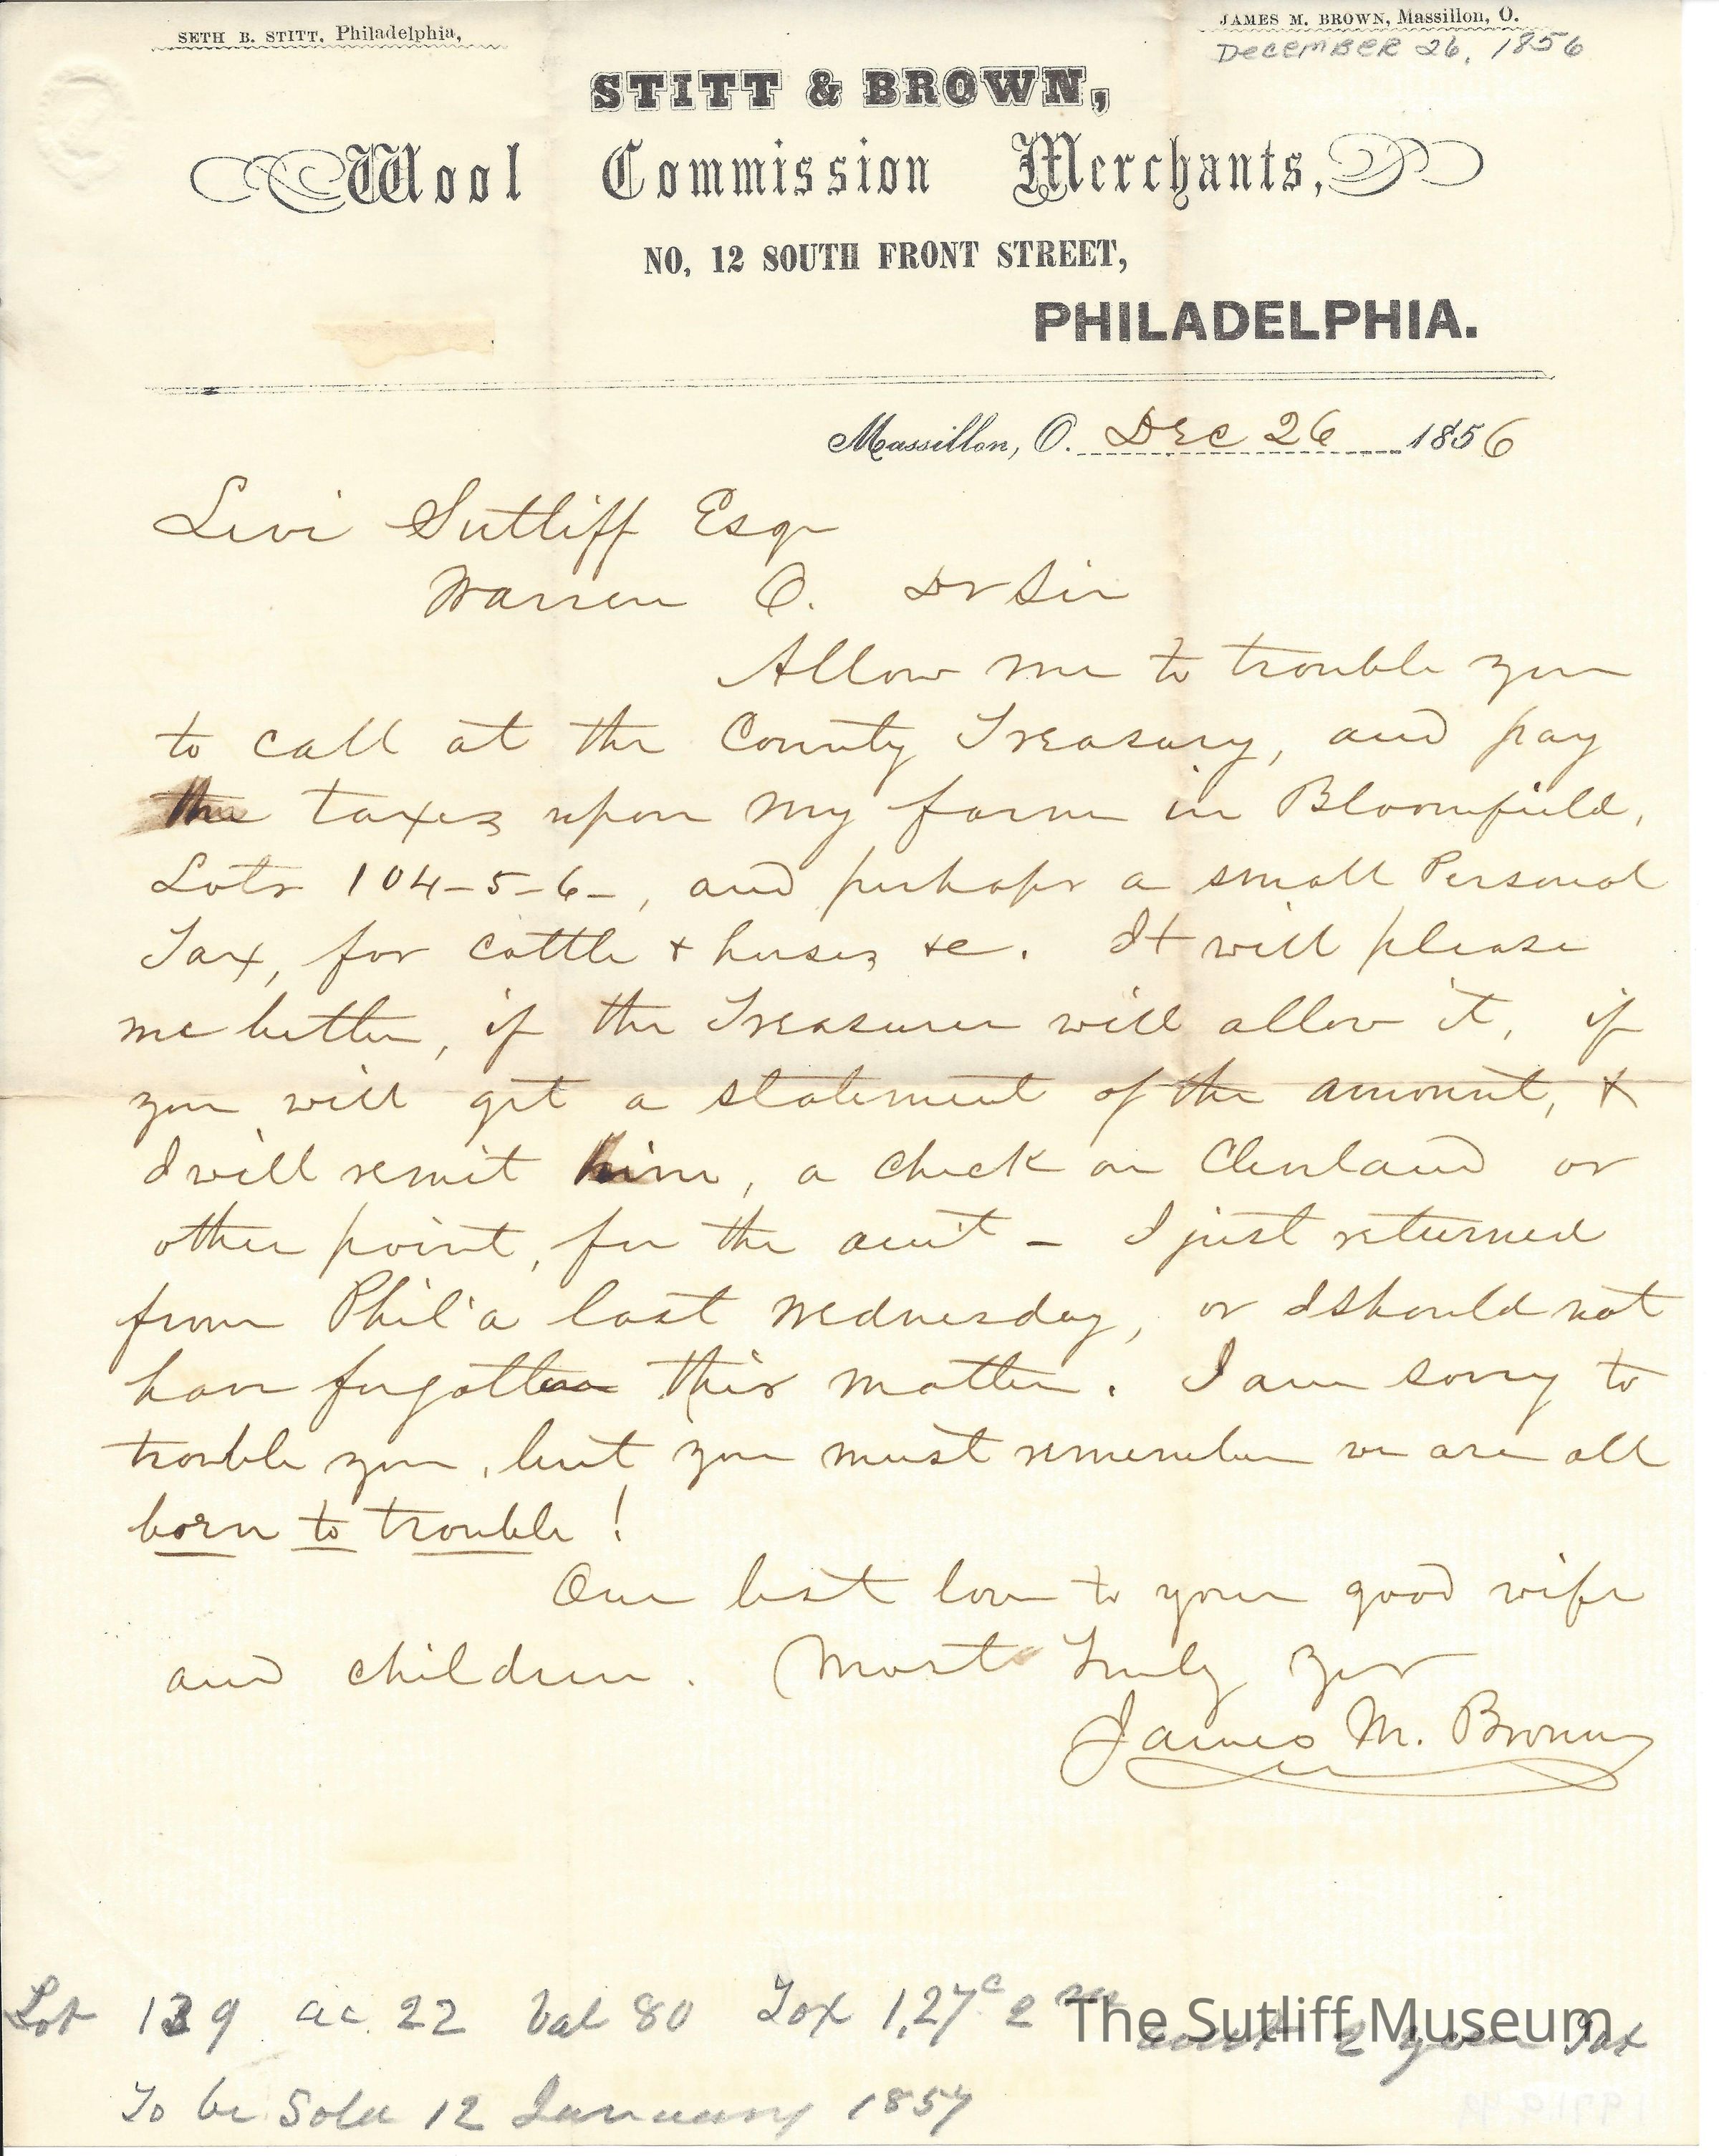 SETH B. STITT. Philadelphia,
JAMES M. BROWN, Massillon, O.
DECEMBER 26, 1856
STITT & BROWN,
Wool Commission Merchants,
NO. 12 SOUTH FRONT STREET,
PHILADELPHIA.
Massillon, O. Dec 26 1856
Levi Sutliff Esqr
Warren O. Dr Sir
Allow me to trouble you
to call at the County Treasury, and pay
the taxes upon my farm in Bloomfield,
Lots 104-5-6-, and perhaps a small Personal
Tax, for cattle & horses &c. It will please
me better, if the Treasurer will allow it, if
you will get a statement of the amount, &
I will remit him, a check on Cleveland or
other point, for the amt - I just returned
from Phil'a last Wednesday, or I should not
have forgotten this matter. I am sorry to
trouble you, but you must remember we are all
born to trouble!
Our best love to your good wife
and children. Most Truly Yrs
James M. Brown
Lot 139 ac. 22 Val 80 Tax 1,27c 2 2 years Tax
The Sutliff Museum
To be Sold 12 January 1857